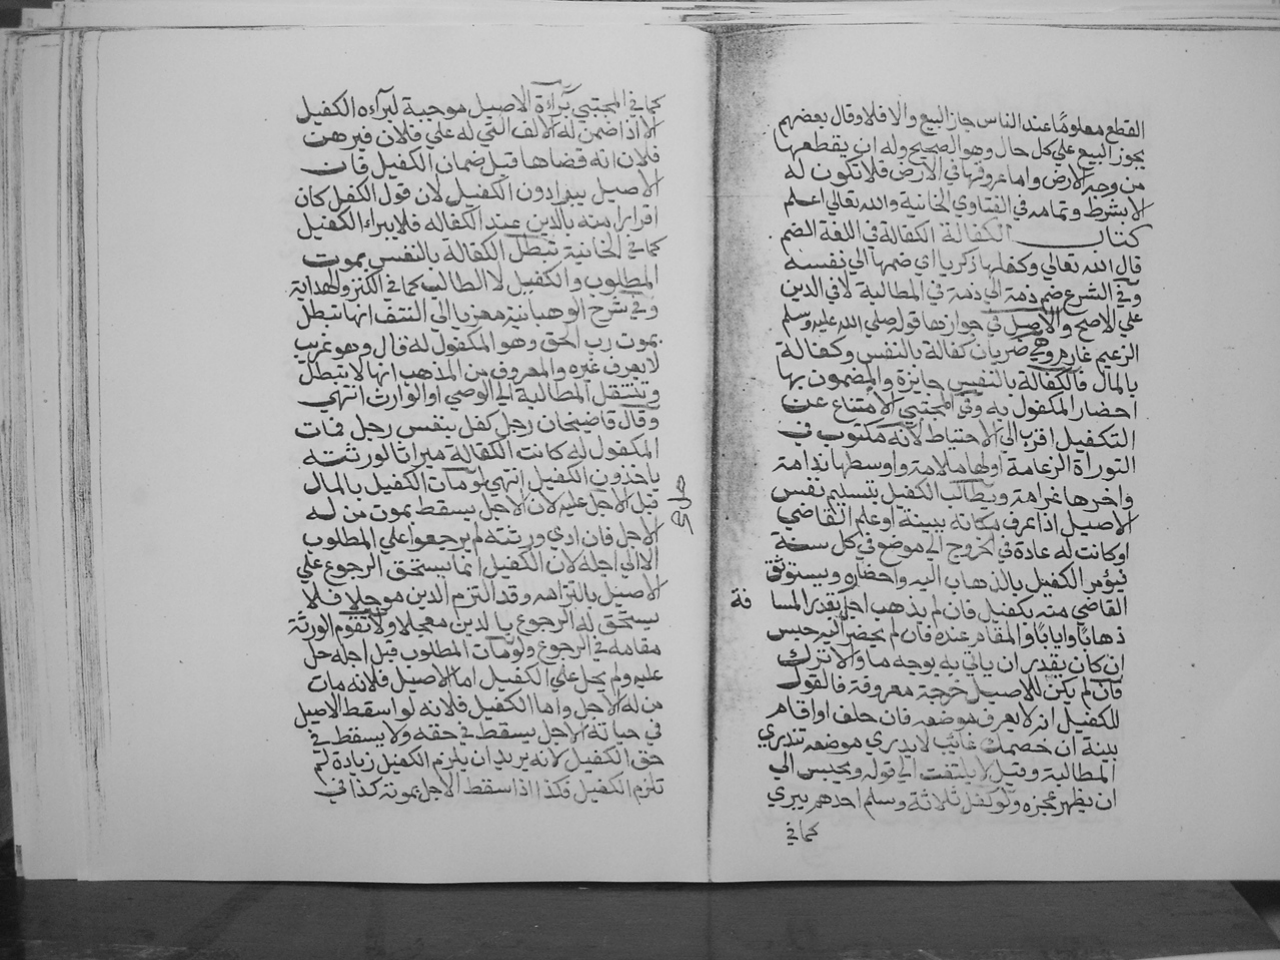 القطع معلوما عند الناس جاز البيع والا فلا وقال بعضهم
يجوز البيع علي كل حال وهو الصحيح وله ان يقطعها
من وجه الارض واما عروقها في الارض فلا تكون له
الا بشرط وتمامه في الفتاوي الخانية والله تعالي اعلم
كتاب الكفالة الكفالة في اللغة الضم
قال الله تعالي وكفلها ذكريا اي ضمها الي نفسه
وفي الشرع ضم ذمة الي ذمة في المطالبة لا في الدين
علي الاصح والاصل في جوازها قوله صلي الله عليه وسلم
الزعيم غارم وهي ضربان كفالة بالنفس وكفالة
بالمال فالكفالة بالنفس جايزة والمضمون بها
احضار المكفول به وفي المجتبي الامتناع عن
التكفيل اقرب الي الاحتياط لانه مكتوب في
التوراة الزعامة اولها ملامة واوسطها ندامة
واخرها غرامة ويطالب الكفيل بتسليم نفس
الاصيل اذا عرف مكانه ببينة او علم القاضي
او كانت له عادة في الخروج الي موضع في كل سنة
فيؤمر الكفيل بالذهاب اليه واحضاره ويستوثق
القاضي منه بكفيل فان لم يذهب اجل بقدر المسافة
ذهابا وايابا والمقام عنده فان لم يحضر انه حبس
ان كان يقدر ان ياتي به بوجه ما والا ترك
فان لم يكن للاصيل خرجة معروفة فالقول
للكفيل انه لا يعرف موضعه فان حلف او اقام
بينة ان خصمك غائب لا يدري موضعه تندري
المطالبة وقيل لا يلتفت الي قوله ويحبس الي
ان يظهر عجزه ولو كفل ثلاثة وسلم احدهم يبري
كما في
كما في المجتبي برآءة الاصيل موجبة لبرآءه الكفيل
الا اذا ضمن له الالف التي له علي فلان فبرهن
فلان انه قضاها قبل ضمان الكفيل فان
الاصيل يبرا دون الكفيل لان قول الكفل كان
اقرارا منه بالدين عند الكفاله فلا يبراء الكفيل
كما في الخانية تبطل الكفالة بالنفس بموت
المطلوب والكفيل لا الطالب كما في الكنز والهداية
وفي شرح الوهبانية معزيا الي النتف انها تبطل
بموت رب الحق وهو المكفول له قال وهو غريب
لا يعرف غيره والمعروف من المذهب انها لا تبطل
وتنتقل المطالبة الي الوصي او الوارث انتهي
وقال قاضيخان رجل كفل بنفس رجل فات
المكفول له كانت الكفالة ميراثا لورثته
ياخذون الكفيل انتهي لو مات الكفيل بالمال
قبل الاجل عليه لان الاجل يسقط بموت من له
الاجل فان ادي ورثته لم يرجعوا علي المطلوب
الا الي اجله لان الكفيل انما يستحق الرجوع علي
الاصيل بالتزامه وقد التزم الدين موجلا فلا
يستحق له الرجوع بالدين معجلا ولا تقوم الورثة
مقامه في الرجوع ولو مات المطلوب قبل اجله حل
عليه ولم يحل علي الكفيل اما الاصيل فلانه مات
من له الاجل واما الكفيل فلانه لو اسقط الاصيل
في حياته الاجل يسقط في حقه ولا يسقط في
حق الكفيل لانه يريد ان يلزم الكفيل زيادة لم
تلزم الكفيل فكذا اذا سقط الاجل بموته كذا في